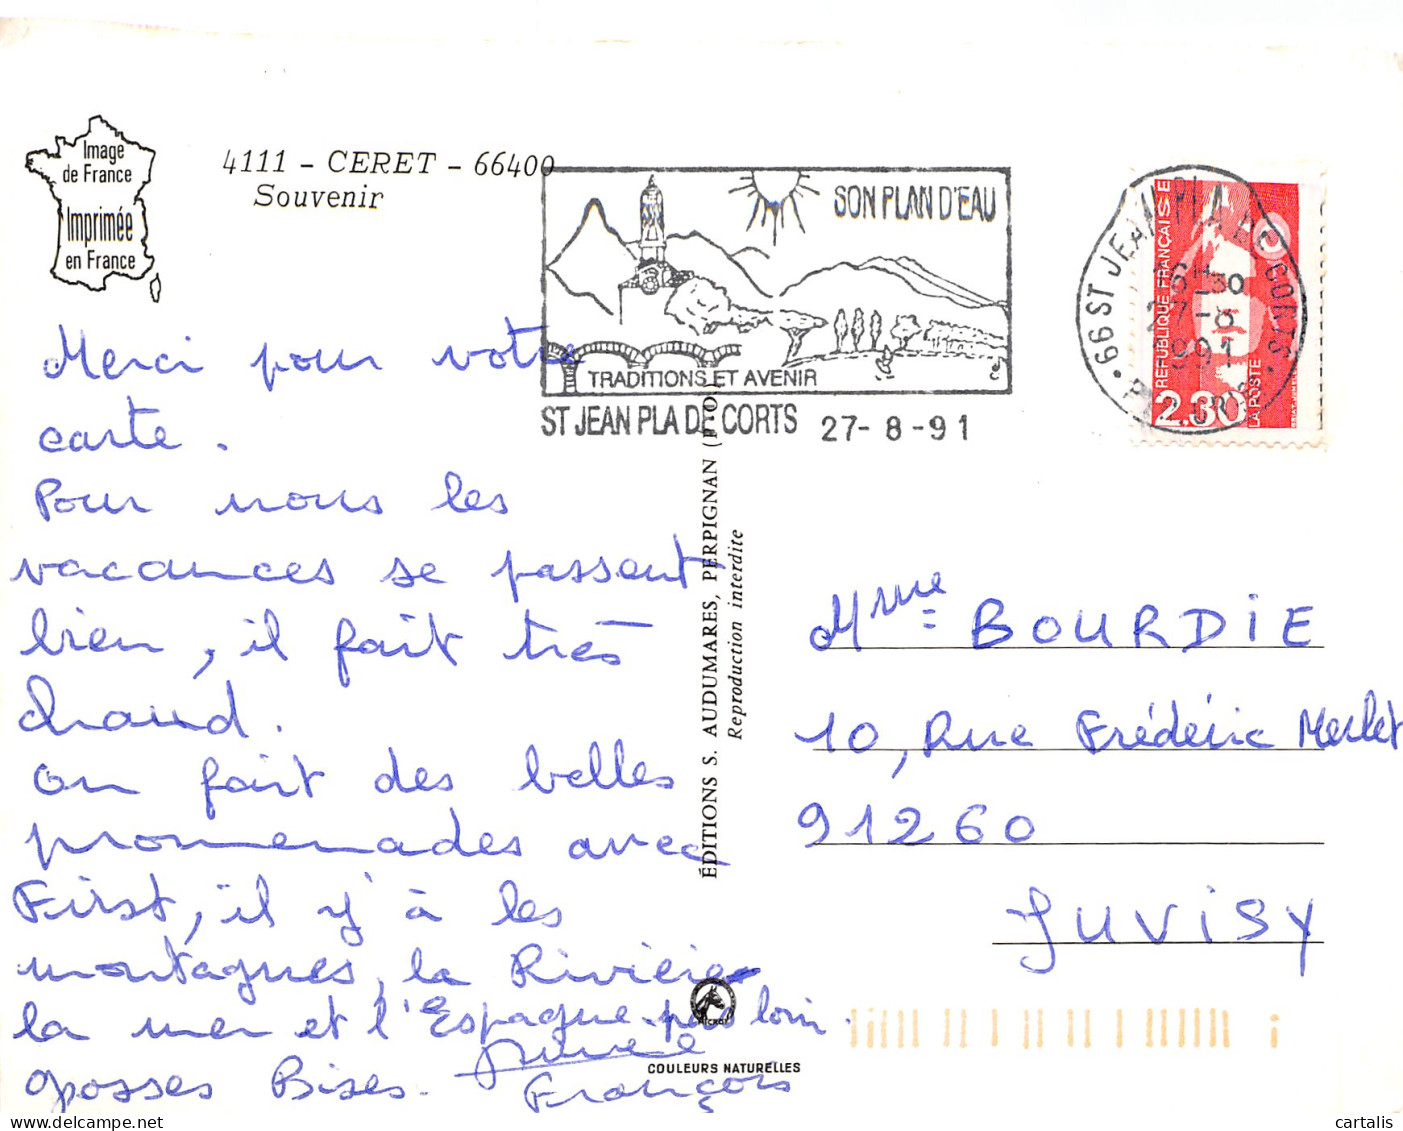 Image
de France
Imprimée
en France
4111 - CERET - 66400
Souvenir
SON PLAN D'EAU
TRADITIONS ET AVENIR
ST JEAN PLA DE CORTS 27-8-91
66 ST JEAN PLA DE CORTS
16H30
27-8
1991
REPUBLIQUE FRANÇAISE
2.30
LA POSTE
Merci pour votre
carte.
Pour nous les
vacances se passent
bien, il fait très
chaud.
on fait des belles
promenades avec
First, il y'à les
montagnes, la Rivière
la mer et l'Espagne pas loin.
grosses Bises.
François
ÉDITIONS S. AUDUMARES, PERPIGNAN (P.-O.)
Reproduction interdite
COULEURS NATURELLES
Mme BOURDIE
10, Rue Frédéric Merlet
91260
JUVISY
cartalis